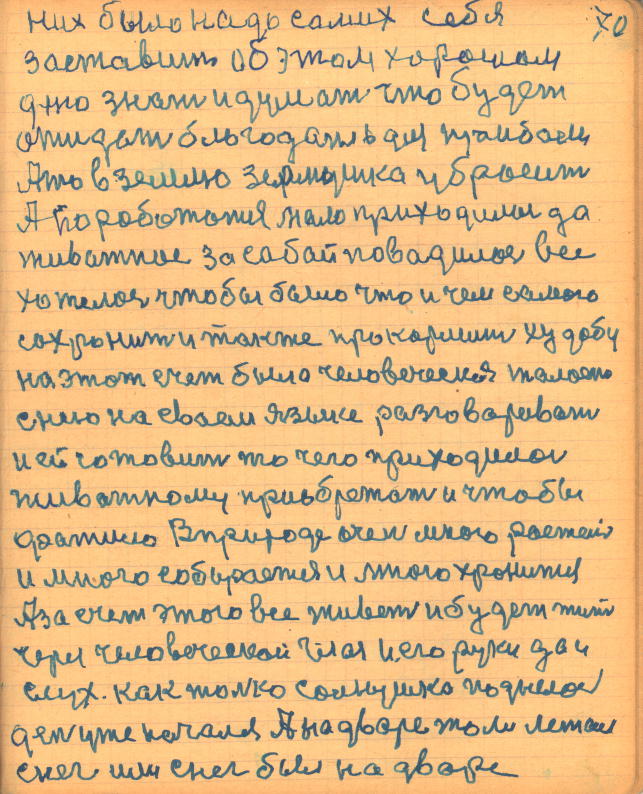 них было надо самих себя 70
заставить об этом хорошом
дню знат и думат что будет
ожидат благодать для приболи
А то в землю зернушка убросит
А поработатя мало приходилос да
живатное за сабай повадится все
хотелоя чтобы было что и чем самого
сохронит и также прокормит худобу
на этот счет была человеческая жалость
с нию на своем языке разговариват
и ей готовит то чего приходилоя
живатному приобретат и чтобы
хватило В природе очен много растет
и много собирается и много хронится
А за счет этого все живет и будет жит
через человеческой глаз и его руки да и
слух. как толко солнушко поднялоя
ден уже начался А на дворе то ли летал
снег или снег был на дворе